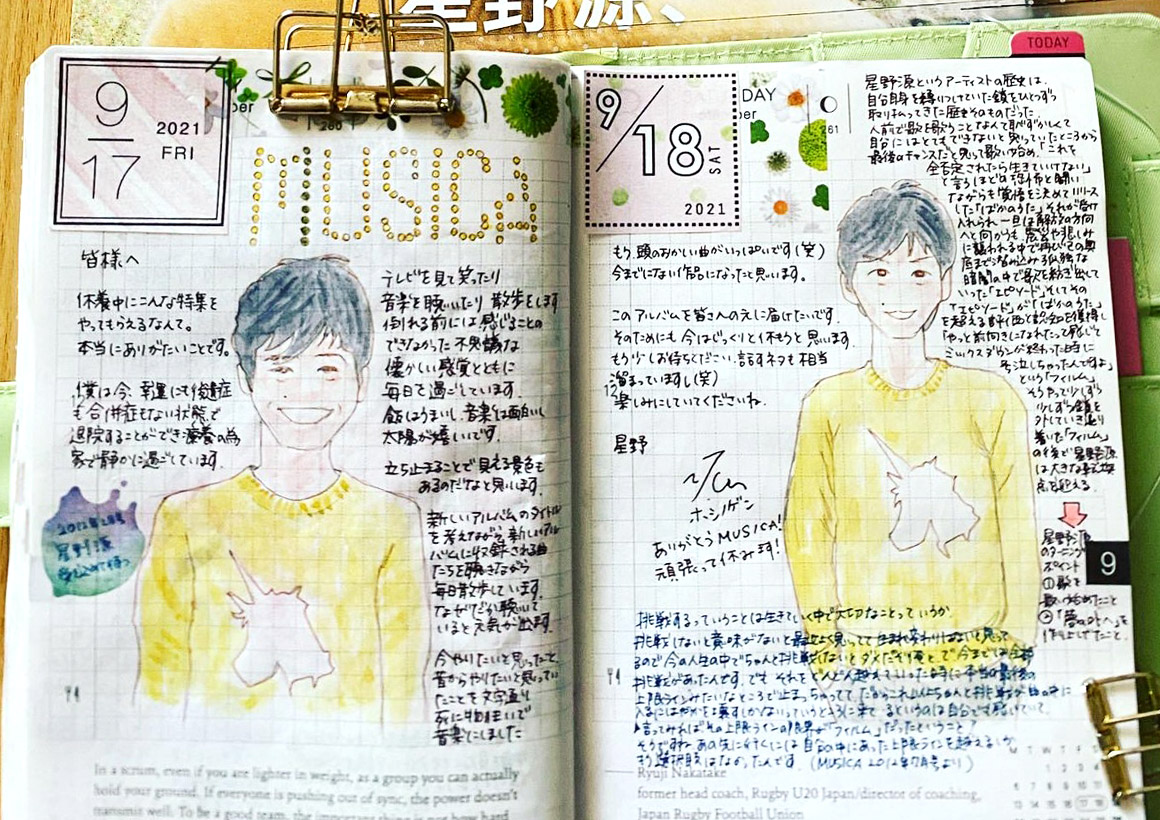 星野源、
9
17
2021
FRI
MUSICA
皆様へ
休養中にこんな特集を
やってもらえるなんて。
本当にありがたいことです。
僕は今、幸運にも後遺症
も合併症もない状態で
退院することができ療養の為
家で静かに過ごしています。
2012年
星野源
テレビを見て笑ったり
音楽を聴いたり 散歩をします
倒れる前には感じることの
できなかった不思議な
懐かしい感覚とともに
毎日を過ごしています。
飯はうまいし、音楽は面白いし
太陽が嬉しいです。
立ち止まることで見える景色も
あるのだなと思います。
新しいアルバムのタイトル
を考えながら新しいアル
バムに収録される曲
たちを聴きながら
毎日散歩しています。
なぜだか聴いて
いると元気が出ます。
今やりたいと思ったこと、
昔からやりたいと思ってい
たことを文字通り
死に物狂いで
音楽にしました
In a scrum, even if you are lighter in weight, as a group you can actually
hold your ground. If everyone is pushing out of sync, the power doesn't
transmit well. To be a good team, the important thing is not how hard
9/18
SAT
2021
DAY
TODAY
もう、頭のおかしい曲がいっぱいです(笑)
今までにない作品になったと思います。
このアルバムを皆さんの元に届けたいです。
そのためにも今はじっくりと休もうと思います。
もう少しお待ちください。話すネタも相当
溜まっていますし(笑)
楽しみにしていてくださいね。
星野
ホシノゲン
ありがとうMUSICA!
頑張って休みます!
星野源というアーティストの歴史は、
自分自身を縛りつけていた鎖をひとつずつ
取り払ってきた歴史そのものだった
人前で歌を歌うことなんて恥ずかしくて
自分にはとてもできないと思っていたところから
最後のチャンスだと思って歌い始め、「これを
全否定されたら生きていけない」
と言うほどの恐怖と闘い
ながらも覚悟を決めてリリース
した「ばかのうた」それが受け
入れられ一旦は解放の方向
へと向かうも
に襲われる中で再び己の奥
底まで潜り込み孤独な
暗闇の中で歌を紡ぎ出して
いった「エピソード」そしてその
「エピソード」が「ばかのうた」
を超える評価と認知を獲得し
「やっと前向きになれたって感じで
ミックスダウンが終わった時に
そ 泣いちゃったんですよ」
という「フィルム」
そうやって少しずつ
少しずつ鎖を
外していき辿り
着いた「フィルム」
の後で星野源
は大きな
を迎える
星野源
のターニング
ポイント
①歌を
歌い始めたこと
②「夢の外へ」を
作り上げたこと。
9
挑戦するっていうことは生きていく中で大切なことっていうか、
挑戦しないと意味がないと
るので今の人生の中でちゃんと挑戦しないとダメだぞ俺と。で、今までは全部
挑戦があったんです。でもそれをどんどん越えていった時に本当の最後の
上限ラインみたいなところで止まっちゃってて
言ってみればその上限ラインの限界が「フィルム」だったということ?
そうですね。あの先に行くには自分の中にあった上限ラインを越えるしか
もう選択肢はなかったんです。(MUSICA 2012年7月号より)
Ryuji Nakatake
former head coach, Rugby U20 Japan/director of coaching,
Japan Rugby Football Union